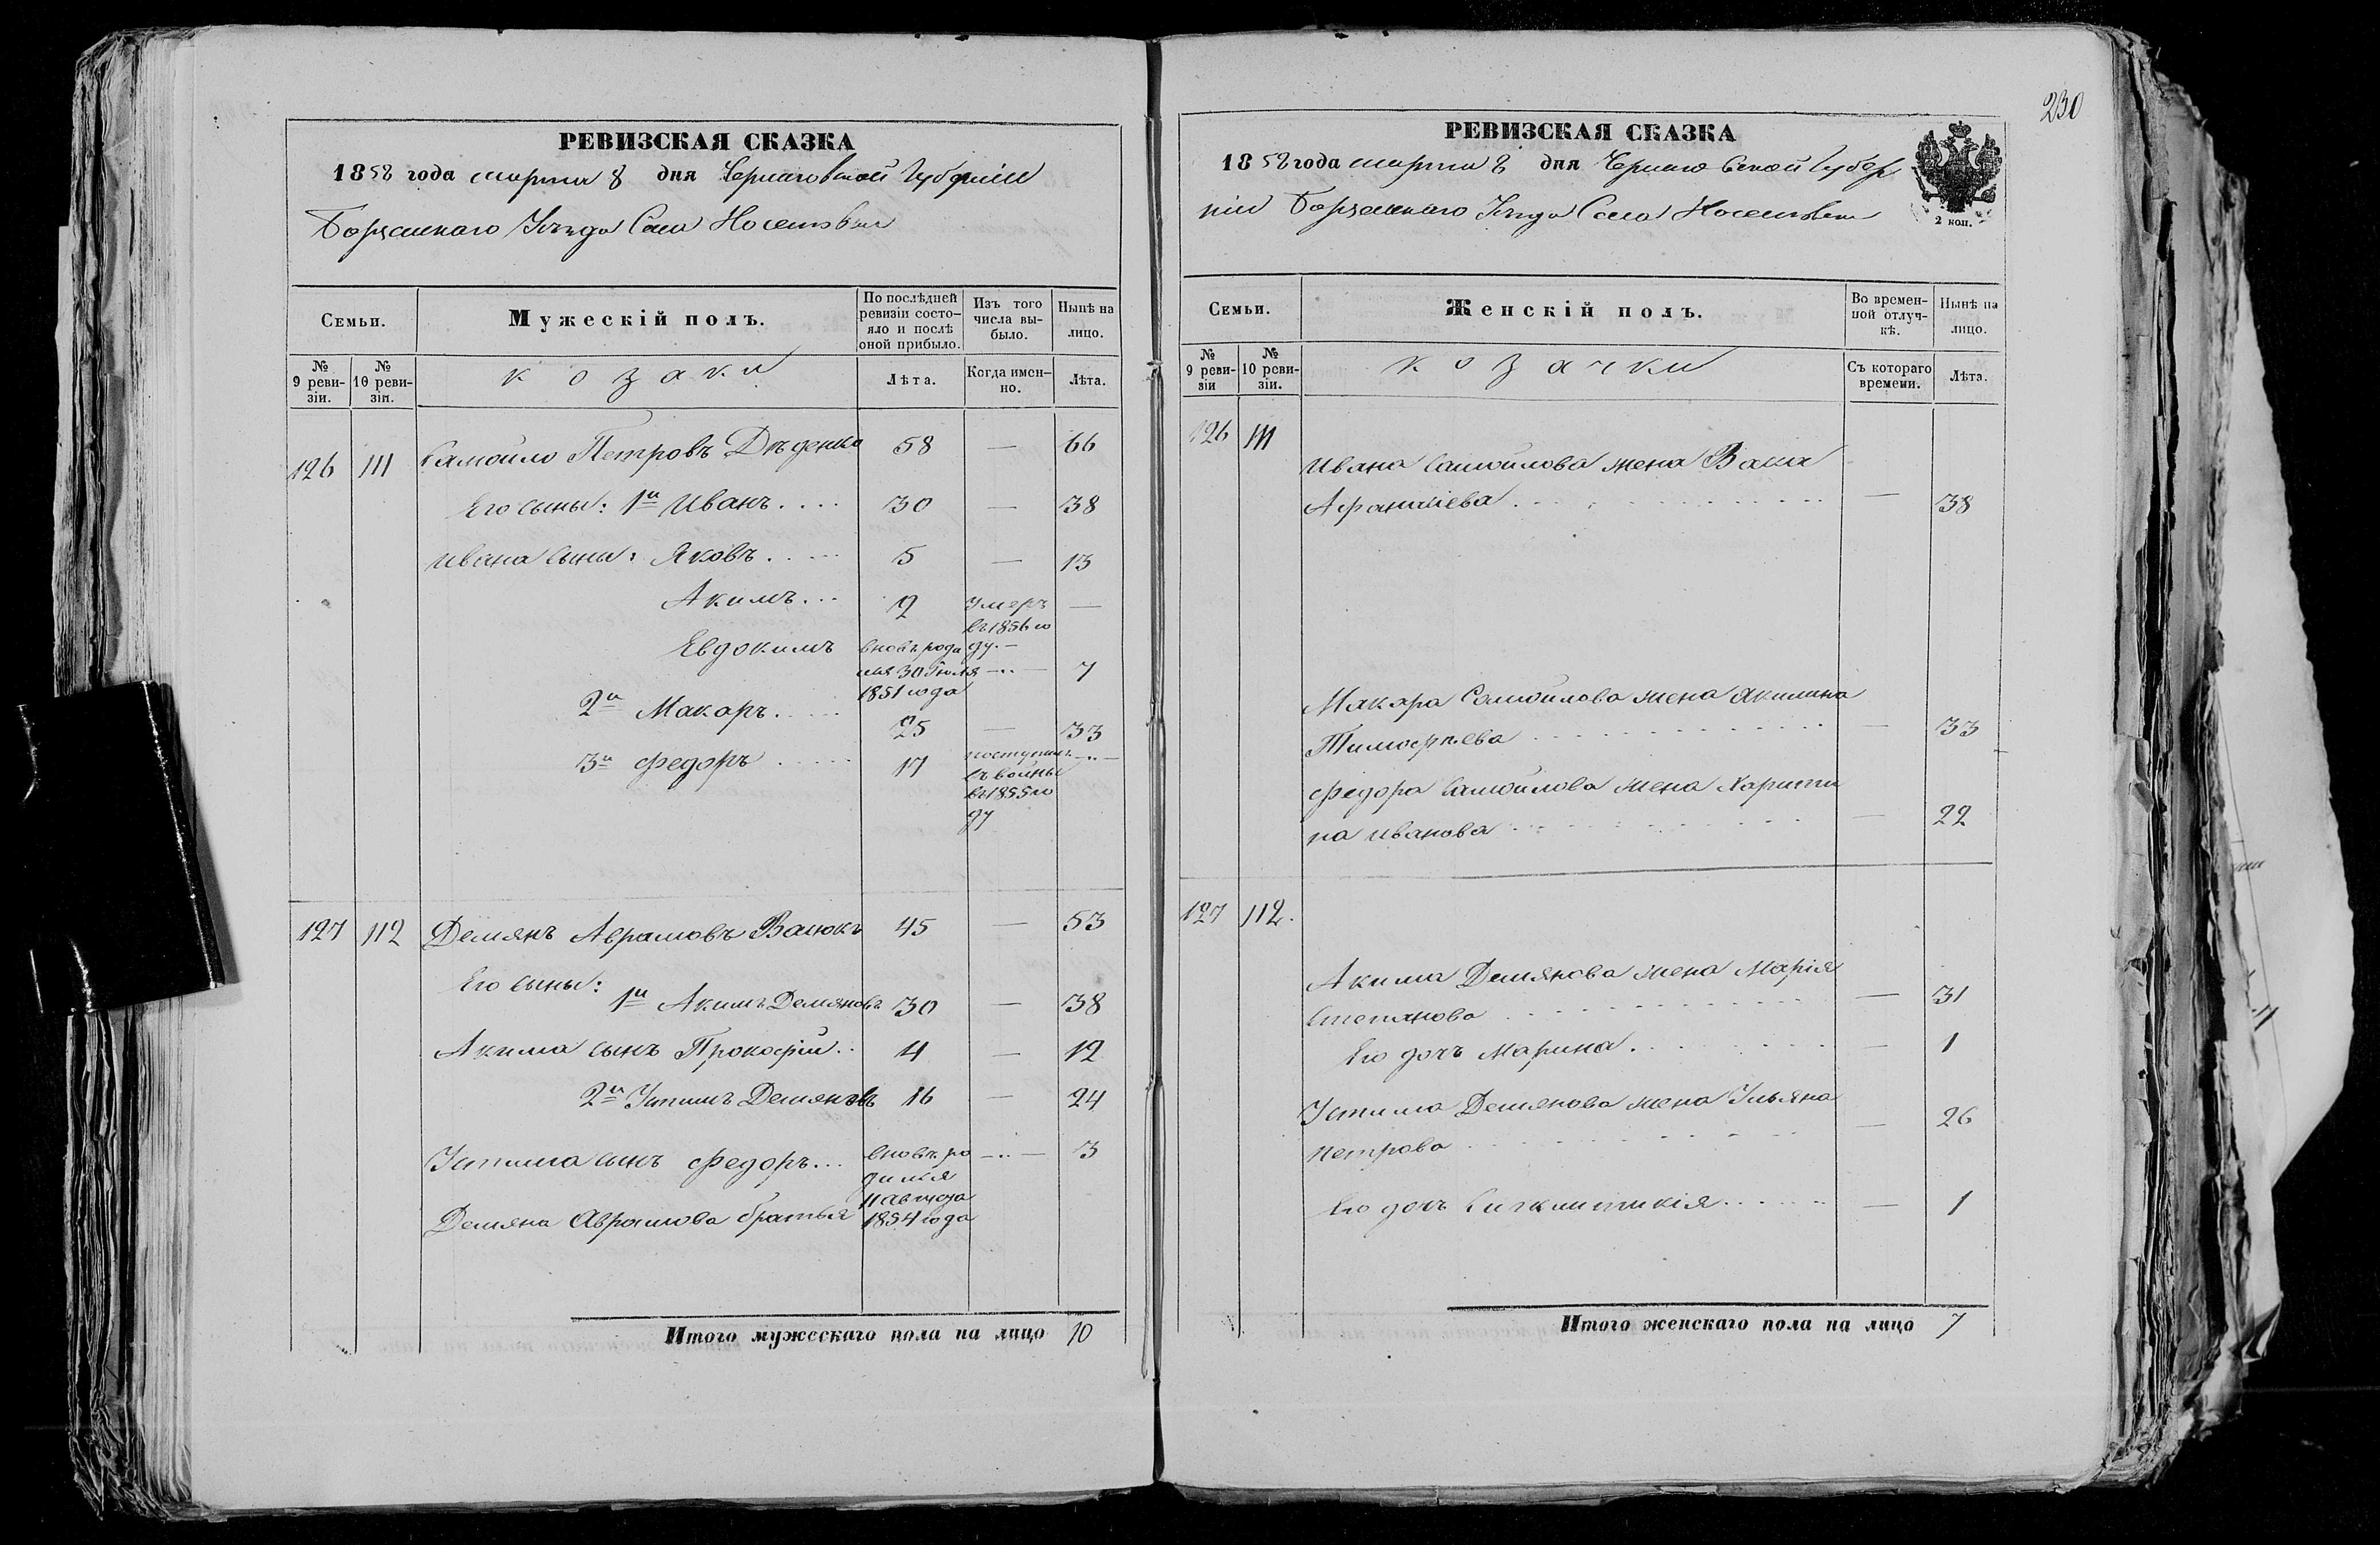 РЕВИЗСКАЯ СКАЗКА
1858 года марта 8 дня Черниговской Губернiи
Борзенскаго Уѣзда Села Носеловки
Семьи.
Мужескій полъ.
По послѣдней ревизіи состояло и послѣ оной прибыло.
Изъ того числа выбыло.
Нынѣ на лицо.
№ 9 ревизіи.
№ 10 ревизіи.
козаки
Лѣта.
Когда именно.
Лѣта.
126 111 Самойло Петровъ Дѣденко 58 — 66
Его сыны: 1й Иванъ.... 30 — 38
Ивана сыны: Яковъ..... 5 — 13
Акимъ... 2 умеръ въ 1856 году. —
Евдокимъ вновь родился 30 Іюля 1851 года —..— 7
2й Макаръ..... 25 — 33
3й Федоръ..... 17 поступилъ въ войны въ 1855 году —..—
127 112 Демянъ Аврамовъ Ванюкъ 45 — 53
Его сыны:
1й Акимъ Демяновъ 30 — 38
Акима сынъ Прокофiй.. 4 — 12
2й Устимъ Демяновъ 16 — 24
Устима сынъ Федоръ... вновь родился 11 августа 1854 года —..— 3
Демяна Аврамова братья
Итого мужескаго пола на лицо 10
230
РЕВИЗСКАЯ СКАЗКА
1858 года марта 8 дня Черниговской Губер
нiи Борзенскаго Уѣзда Села Носеловки
2 коп.
Семьи.
Женскій полъ.
Во временной отлучкѣ.
Нынѣ на лицо.
№ 9 ревизіи
№ 10 ревизіи.
козачки
Съ котораго времени.
Лѣта.
126 111
Ивана Самойлова жена Васса
Афанасiева — 38
Макара Самойлова жена Якилина
Тимофѣева — 33
Федора Самойлова жена Харити
на Иванова — 22
127 112.
Акима Демянова жена Марія
Степанова — 31
Его дочь Марина — 1
Устима Демянова жена Ульяна
Петрова — 26
Его дочь — 1
Итого женскаго пола на лицо 7